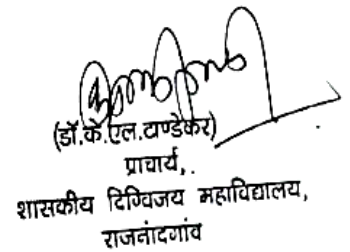 (डॉ.के.एल.टाण्डेकर)
प्राचार्य,.
शासकीय दिग्विजय महाविद्यालय,
राजनांदगांव